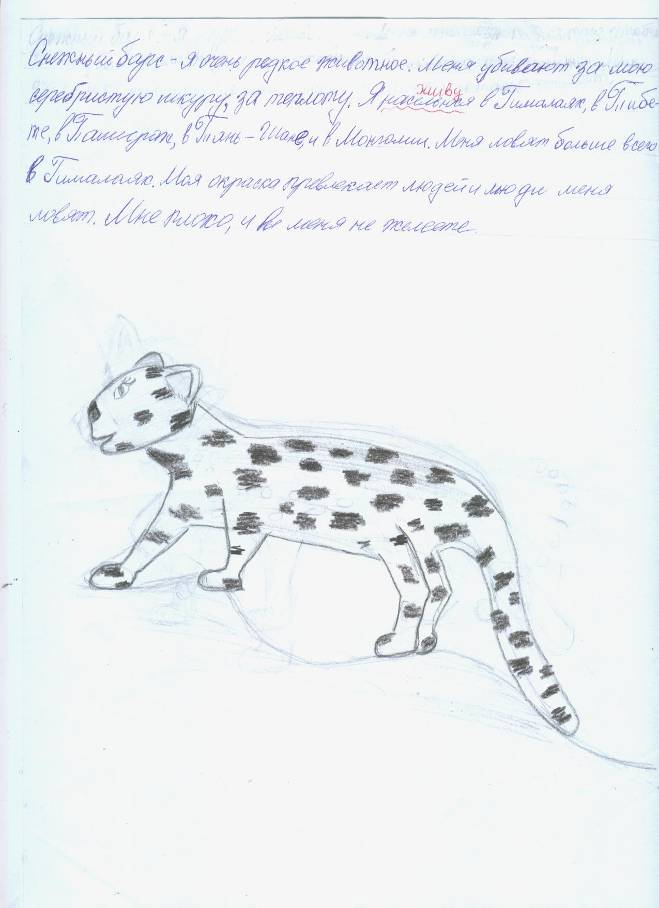 Снежный барс - я очень редкое животное. Меня убивают за мою
серебристую шкуру, за теплоту. Я населяюся живу в Гималаях, в Тибе-
те, в Памирах, в Тянь-Шане, и в Монголии. Меня ловят больше всего
в Гималаях. Моя окраска превлекает людей и люди меня
ловят. Мне плохо, и вы меня не жалеете.